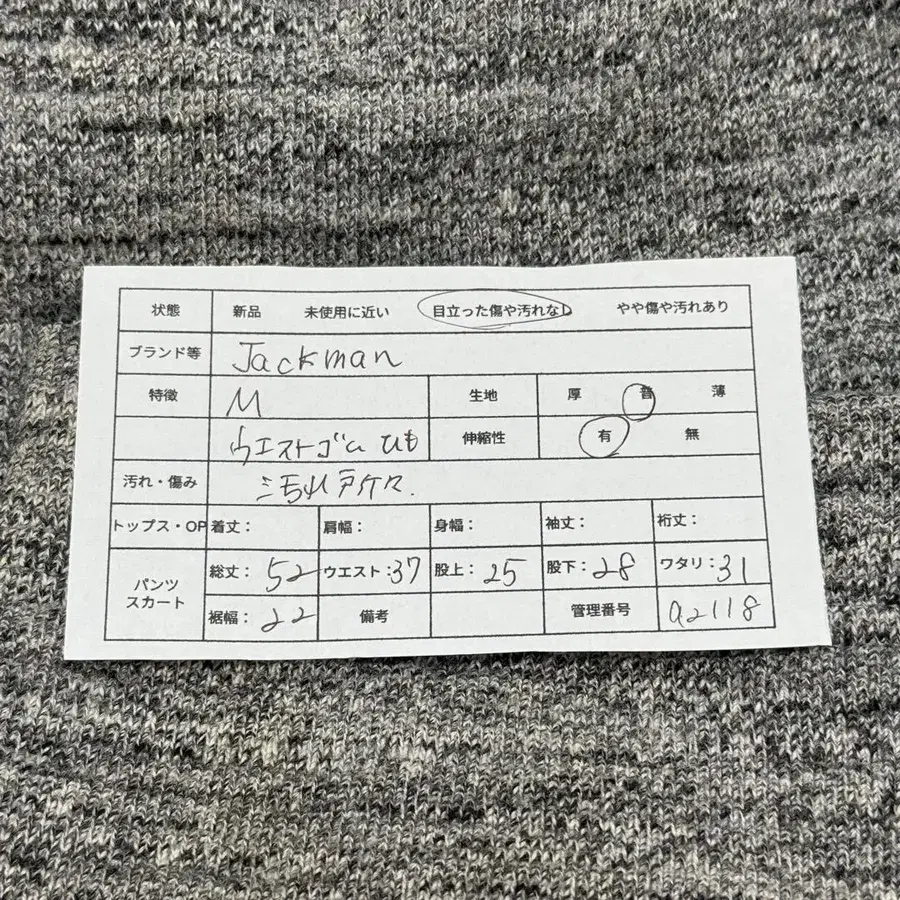 状態 新品 未使用に近い 目立った傷や汚れなし やや傷や汚れあり
ブランド等 Jackman
特徴 M 生地 厚 普 薄
ウエストゴム ひも 伸縮性 有 無
汚れ・傷み
トップス・OP 着丈: 肩幅: 身幅: 袖丈: 裄丈:
パンツ スカート 総丈: 52 ウエスト: 37 股上: 25 股下: 28 ワタリ: 31
裾幅: 22 備考 管理番号 a2118